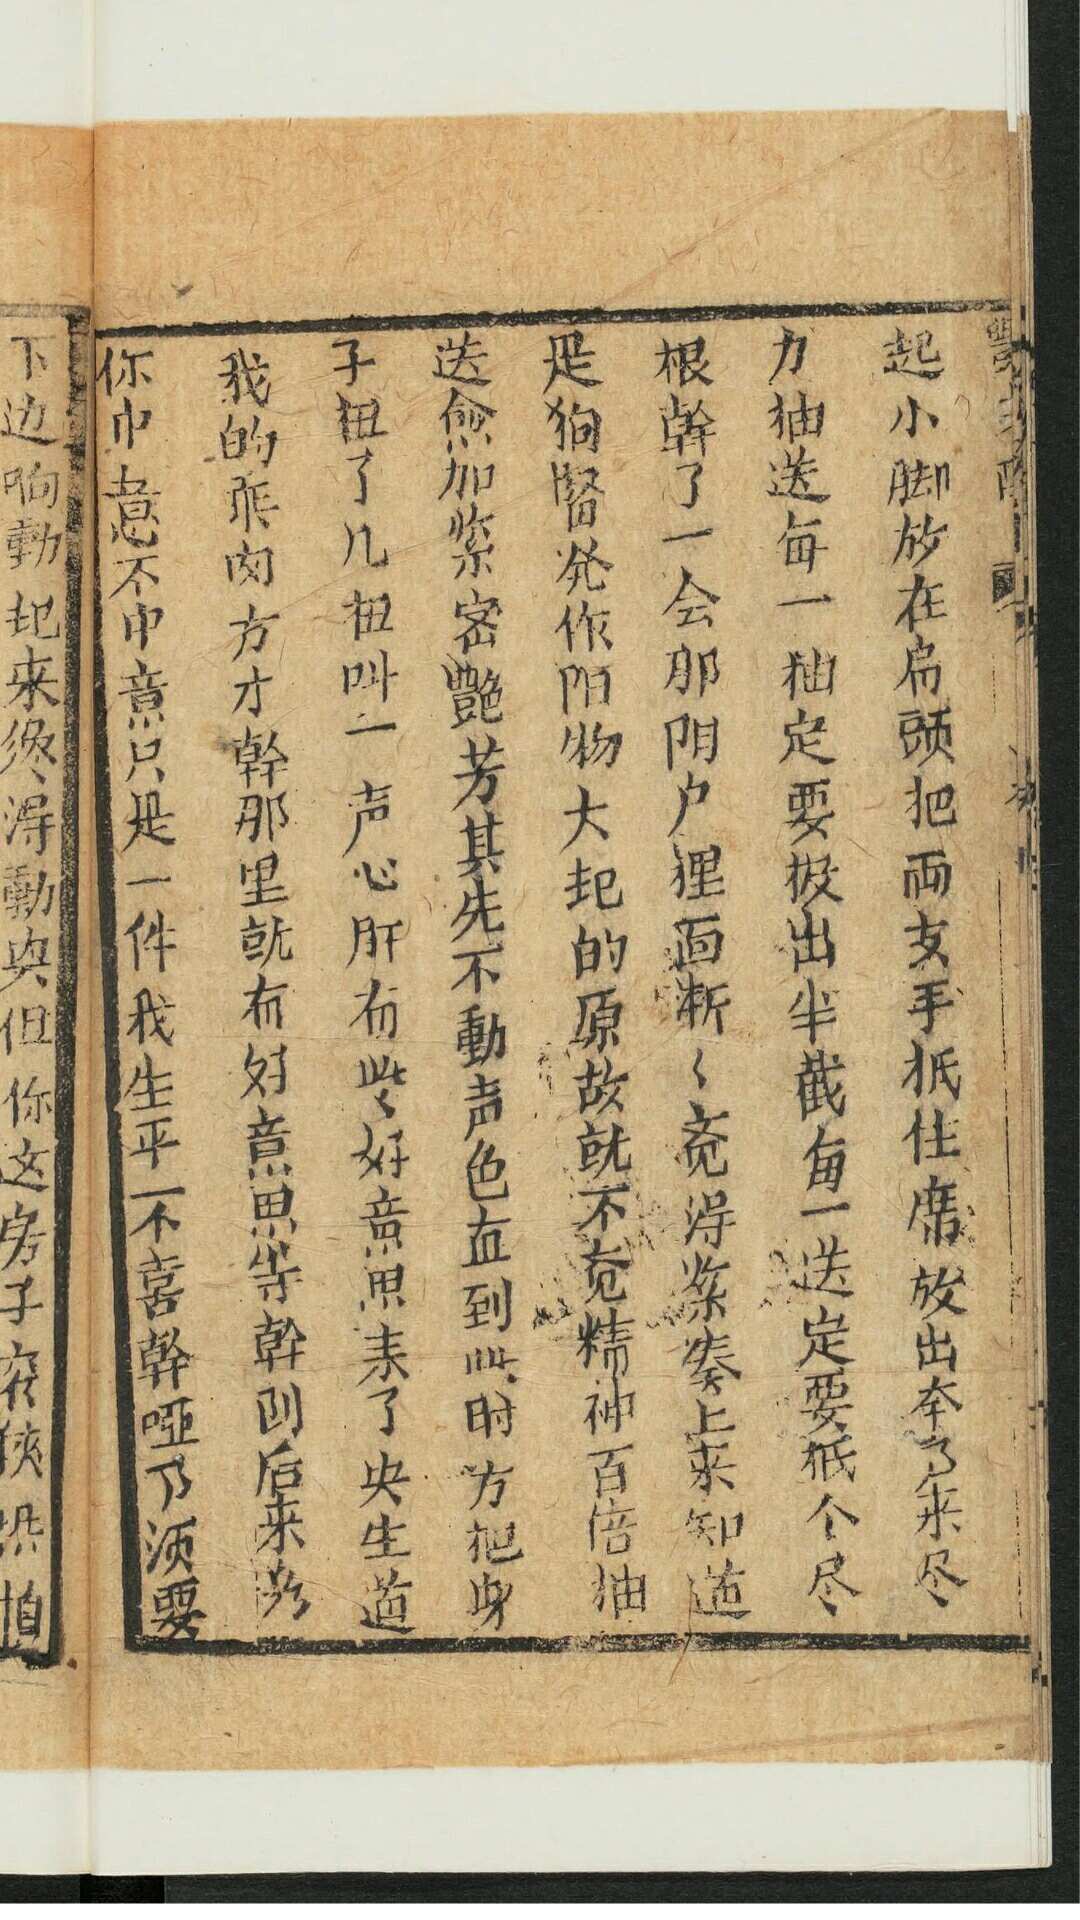 起小脚放在肩頭把両支手抵住席放出本事来尽
力抽送每一抽定要拔出半截每一送定要抵个尽
根幹了一会那阴户里面渐〻覔得紧凑上来知道
是狗腎発作阳物大起的原故就不覔精神百倍抽
送愈加紧密艶芳其先不動声色直到此时方把身
子扭了几扭叫一声心肝有些好意思来了央生道
我的乖肉方才幹那里就有好意思等幹到后来看
你中意不中意只是一件我生平不喜幹啞事须要
下边响動起来终得動興但你这房子窄狭恐怕